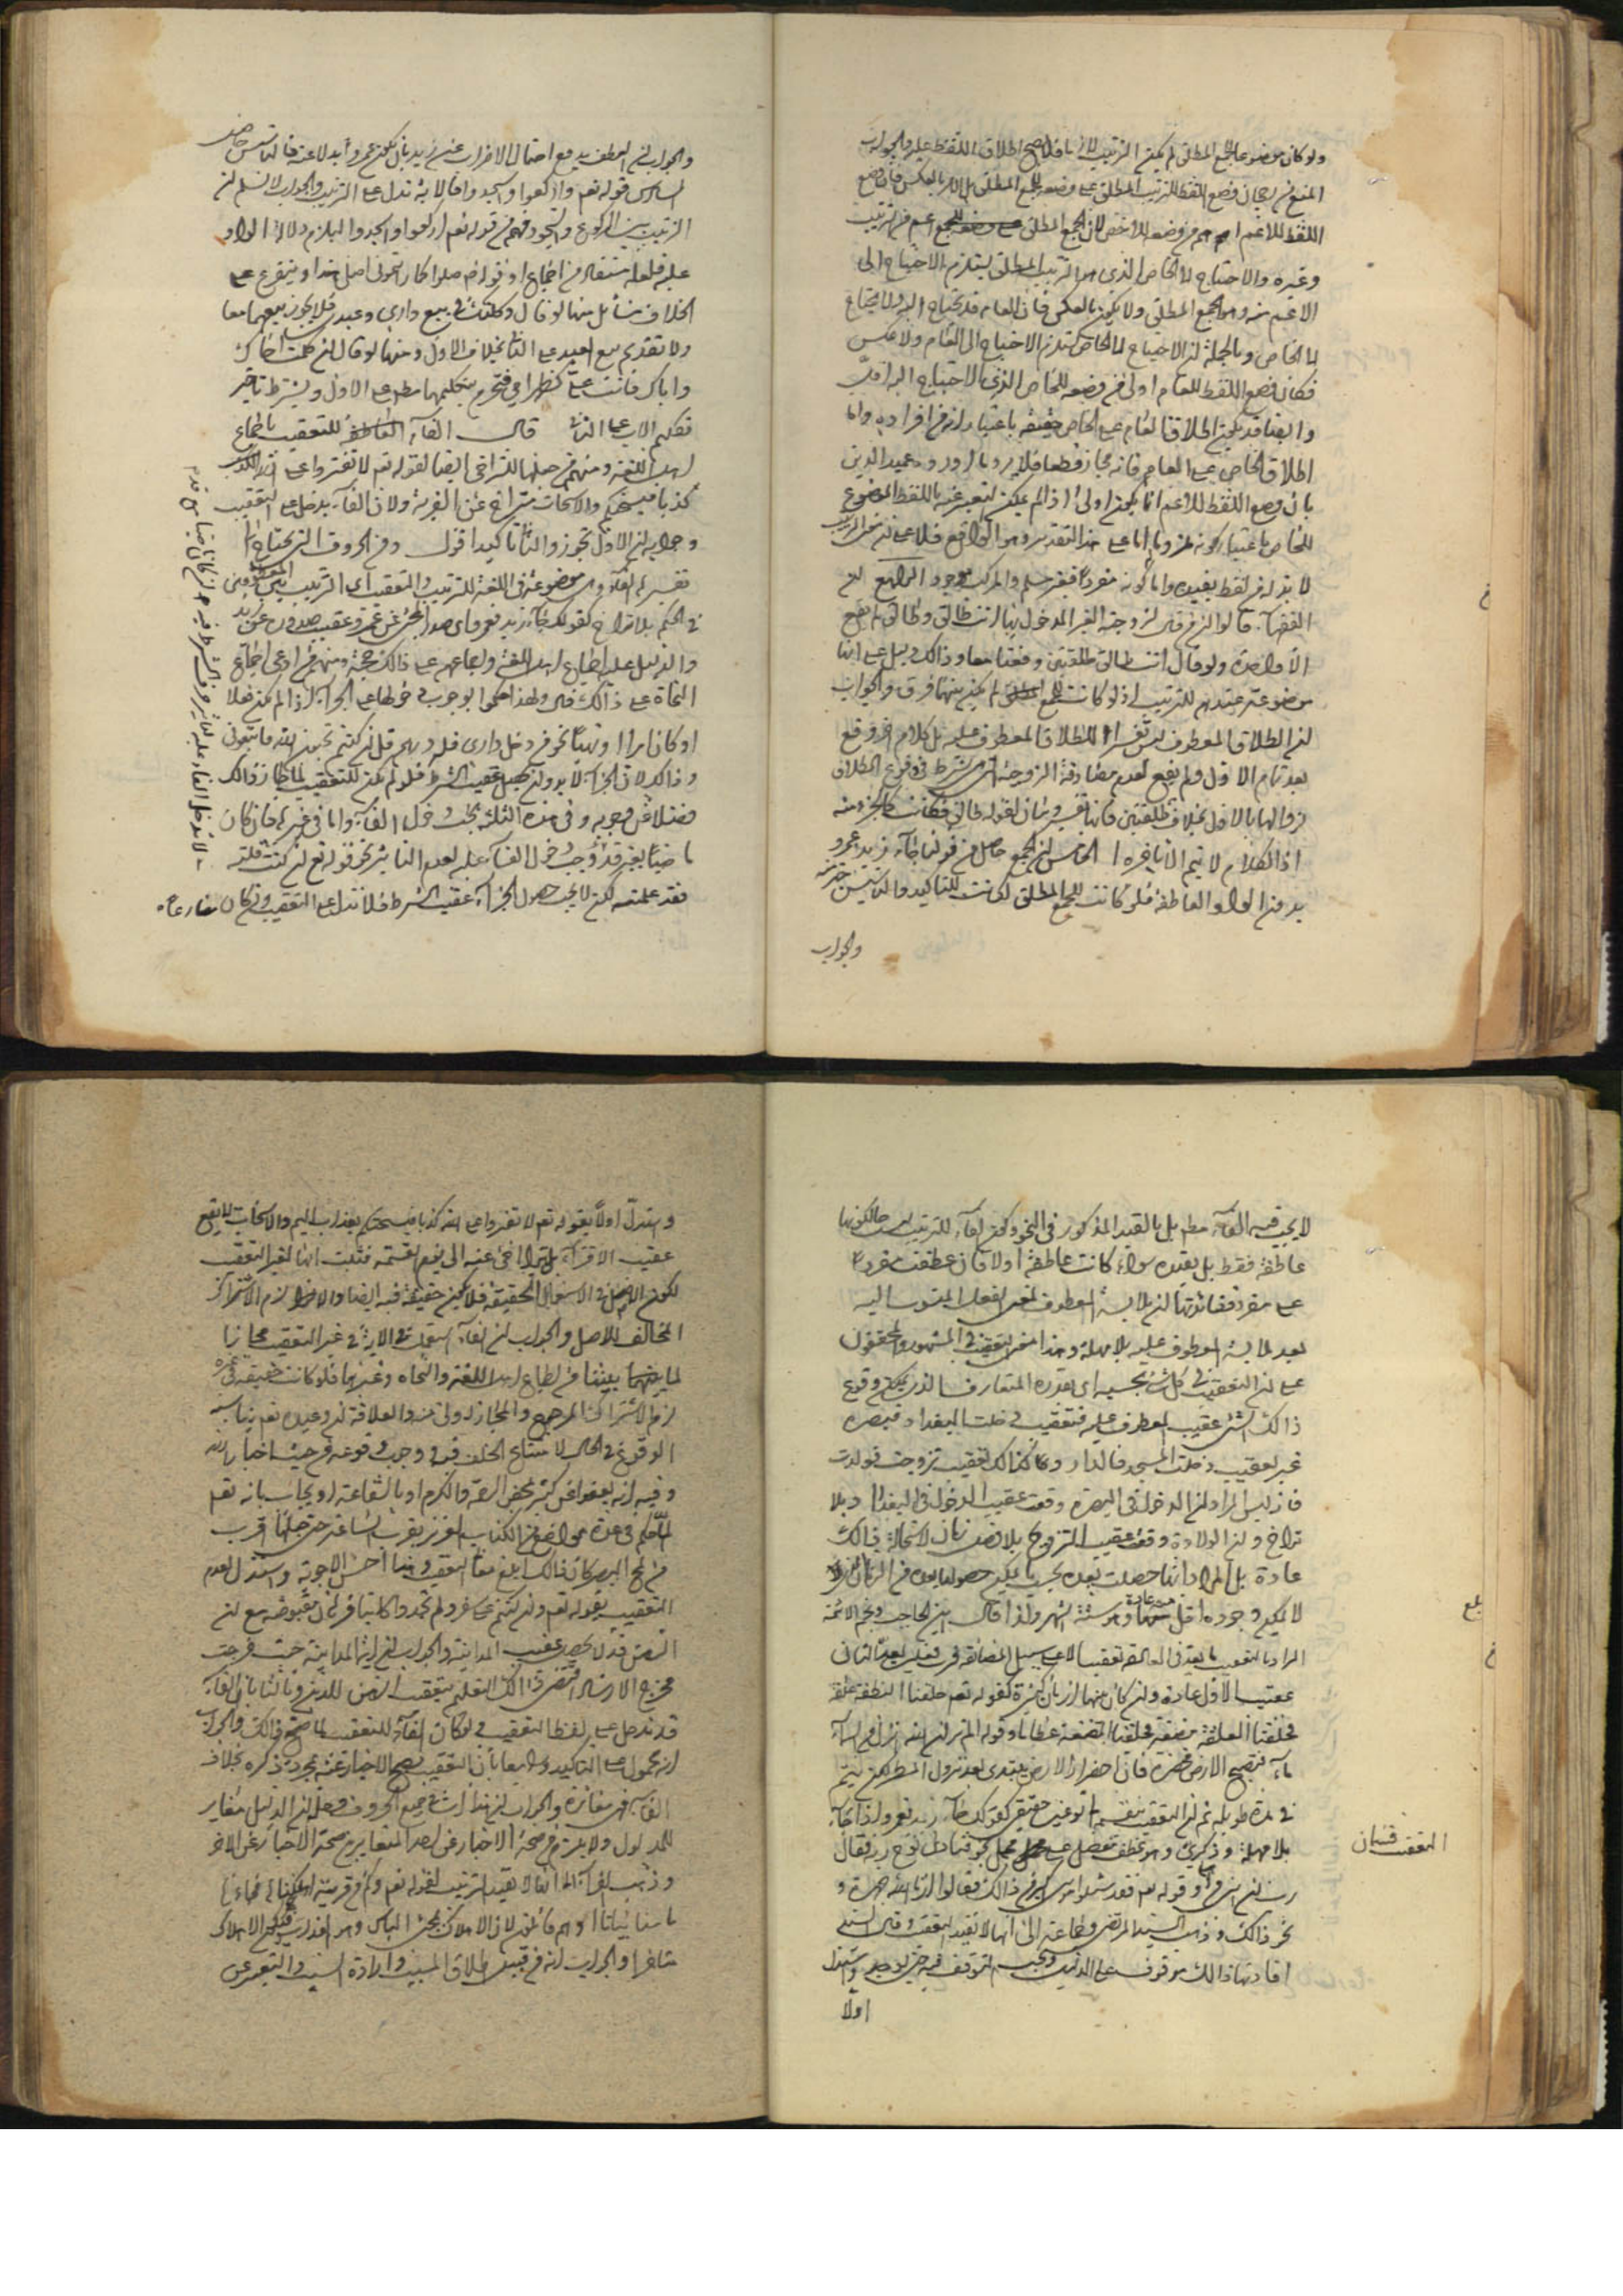 ولو كان موضوعا للجمع المطلق لم يكن الترتيب لازما فلا يصح اطلاق اللفظ عليه والجواب
المنع من رجحان وضع اللفظ للترتيب المطلق على وضعه للجمع المطلق بل الامر بالعكس فان وضع
اللفظ للاعم اهم من وضعه للاخص لان الجمع المطلق اعم من الترتيب
وغيره والاحتياج الى الخاص الذي هو الترتيب المطلق يستلزم الاحتياج الى
الاعم منه وهو الجمع المطلق ولا يكون بالعكس فان العام قد يحتاج اليه ولا يحتاج
الى الخاص وبالجملة ان الاحتياج الى الخاص يستلزم الاحتياج الى العام ولا عكس
فكان وضع اللفظ للعام اولى من وضعه للخاص الذي الاحتياج اليه اقل
وايضا قد يكون اطلاق العام على الخاص حقيقة باعتبار انه من افراده واما
اطلاق الخاص على العام فانه مجاز قطعا فلا يرد ما اورده عميد الدين
بان وضع اللفظ للاعم انما يكون اولى اذا لم يمكن التعبير عنه باللفظ الموضوع
للخاص باعتبار كونه ملزوما اما على هذا التقدير وهو الواقع فلا على ان معنى الترتيب
لا بد له من لفظ يفيده واما كونه مفردا فغير مسلم والمركب موجود الرابع ان
الفقهاء قالوا ان من قال لزوجته الغير المدخول بها انت طالق وطالق لم يقع
الا واحدة ولو قال انت طالق طلقتين وقعتا معا وذلك يدل على انها
موضوعة عندهم للترتيب اذ لو كانت للجمع لم يكن بينهما فرق والجواب
ان الطلاق المعطوف ليس تفسيرا للطلاق المعطوف عليه بل كلام اخر وقع
بعد تمام الاول ولم يقع لعدم مصادفة الزوجية التي هي شرط في وقوع الطلاق
لزوالها بالاول بخلاف طلقتين فانها تفسير وبيان لقوله طالق فكانت كالجزء منه
اذ الكلام لا يتم الا باخره الخامس ان الجمع حاصل من قولنا جاء زيد عمرو
بدون الواو العاطفة فلو كانت للجمع المطلق لكانت للتاكيد والتاسيس خير منه
والجواب
والجواب ان العطف يدفع احتمال الاضراب عن زيد بان يكون عمرو بدلا عنه فالتاسيس حاصل
السادس قوله تعالى واركعوا واسجدوا فالاية تدل على الترتيب والجواب لا نسلم ان
الترتيب بين الركوع والسجود فهم من قوله تعالى اركعوا واسجدوا ليلزم دلالة الواو
عليه فلعله مستفاد من اجماع او قوله ص صلوا كما رايتموني اصلي هذا ويتفرع على
الخلاف مسائل منها لو قال وكلتك في بيع داري وعبدي فلا يجوز بيعهما معا
ولا تقديم بيع العبد على الثاني بخلاف الاول ومنها لو قال ان كلمت اخاك
واباك فانت علي كظهر امي فتحرم بتكليمهما مطلقا على الاول ويشترط تاخير
تكليم الاب على الثاني قال الفاء العاطفة للتعقيب باجماع
اهل اللغة ومنهم من جعلها للتراخي ايضا لقوله تعالى لا تفتروا على الله الكذب
كذبا فيسحتكم والاسحات متراخ عن الفرية ولان الفاء يدخل على التعقيب
وجوابه ان الاول تجوز والثاني تاكيد اقول ومن الحروف التي يحتاج الى
تفسيره الفاء وهي موضوعة في اللغة للترتيب والتعقيب اي الترتيب بين المعطوفين
في الحكم بلا تراخ كقولك جاء زيد فعمرو اي صدر المجيء عن عمرو عقيب صدوره عن زيد
والدليل عليه اجماع اهل اللغة واجماعهم على ذلك حجة ومنهم من ادعى اجماع
النحاة على ذلك قال ولهذا حكموا بوجوب دخولها على الجزاء اذا لم يكن فعلا
او كان امرا او نهيا نحو من دخل داري فله درهم قل ان كنتم تحبون الله فاتبعوني
وذلك لان الجزاء لا بد وان يحصل عقيب الشرط فلو لم يكن للتعقيب لما جاز ذلك
فضلا عن وجوبه وفي هذه الثلثة يجب دخول الفاء واما في غيرها فان كان
ماضيا بغير قد وجب دخول الفاء عليه لعدم التاثير نحو قوله تعالى ان كنت قلته
فقد علمته لكن لا يجب حصول الجزاء عقيب الشرط فلا تدل على التعقيب وان كان مضارعا
لا يجب فيه الفاء مطلقا بل بالقيد المذكور في النحو وكون الفاء للترتيب ليس حال كونها
عاطفة فقط بل يفيده سواء كانت عاطفة او لا فان عطفت مفردا
على مفرد ففائدتها ان ملابسة المعطوف لمعنى الفعل المنسوب اليه
بعد ملابسة المعطوف عليه بلا مهلة وهذا معنى التعقيب في المشهور والمحققون
على ان التعقيب في كل شيء بحسبه اي بقدره المتعارف الذي يمكن وقوع
ذلك الشيء عقيب المعطوف عليه فتعقيب دخلت البغداد فبصرة
غير تعقيب دخلت المسجد فالدار وكذلك تعقيب تزوجت فولدت
فانه ليس المراد ان الدخول في البصرة وقعت عقيب الدخول في البغداد بلا
تراخ وان الولادة وقعت عقيب التزوج بلا فصل زمان لاستحالة ذلك
عادة بل المراد انها حصلت بعده بحسب ما يمكن حصولها بعده من الزمان الذي
لا يمكن وجوده اقل منه عادة وهو ستة اشهر ولذا قال ابن الحاجب ونجم الائمة
المراد بالتعقيب ما يعد في العادة تعقيبا لا على سبيل المضايقة فرب فعلين يعد الثاني
عقيب الاول عادة وان كان بينهما ازمان كثيرة كقوله تعالى خلقنا النطفة علقة
فخلقنا العلقة مضغة فخلقنا المضغة عظاما وقوله الم تر ان الله انزل من السماء
ماء فتصبح الارض مخضرة فان اخضرار الارض يبتدي بعد نزول المطر لكن يتم
في مدة طويلة ثم ان التعقيب ينقسم الى نوعين حقيقي كقولك جاء زيد فعمرو اذا جاء
بلا مهلة وذكري وهو عطف مفصل على مجمل نحو فنادى نوح ربه فقال
رب ان ابني من اهلي وقوله تعالى فقد سئلوا موسى اكبر من ذلك فقالوا ارنا الله جهرة و
نحو ذلك وذهب السيد المرتضى وجماعة الى انها لا تفيد التعقيب وقال السيد
افادتها ذلك موقوف على الدليل ويجب التوقف فيه حتى يوجد واستدل
اولا
التعقيب قسمان
بلغ
واستدل اولا بقوله تعالى لا تفتروا على الله كذبا فيسحتكم بعذاب اليم والاسحات لا يقع
عقيب الافتراء بل يتراخى عنه الى يوم القيمة فثبت انها لغير التعقيب
لكون الاصل في الاستعمال الحقيقة فلا يكون حقيقة فيه ايضا والا لزم الاشتراك
المخالف للاصل والجواب ان الفاء استعملت في الاية في غير التعقيب مجازا
لما بينا من اجماع اهل اللغة والنحاة وغيرهما فلو كانت حقيقة في غيره
لزم الاشتراك المرجوح والمجاز اولى منه والعلاقة ان وعيده تعالى يناسبه
الوقوع في الحال لامتناع الخلف فيه ووجوب وقوعه من حيث اخبار الله
وفيه انه يعفو عن كثير بمحض الرحمة والكرم او بالشفاعة او يجاب بانه تعالى
لما حكم في عدة مواضع من الكتاب العزيز بقرب الساعة حتى جعلها اقرب
من لمح البصر كان ذلك ابلغ معنى التعقيب وهذا احسن الاجوبة واستدل لعدم
التعقيب بقوله تعالى وان كنتم على سفر ولم تجدوا كاتبا فرهان مقبوضة مع ان
الرهن قد لا يحصل عقيب المداينة والجواب ان اية المداينة حيث خرجت
مخرج الارشاد اقتضى ذلك التعليم بتعقيب الرهن للدين وثالثا بان الفاء
قد تدخل على لفظ التعقيب فلو كان الفاء للتعقيب لما صح ذلك والجواب
انه محمول على التاكيد ورابعا بان التعقيب يصح الاخبار عنه بمجرد ذكره بخلاف
الفاء فهي مغايرة والجواب ان هذا ات في جميع الحروف وحله ان الدليل مغاير
للمدلول ولا يلزم من صحة الاخبار عن احد المتغايرين صحة الاخبار عن الاخر
وذهب الفراء الى انها لا تفيد الترتيب لقوله تعالى وكم من قرية اهلكناها فجاءها
باسنا بياتا او هم قائلون لان الاهلاك بمجيء الباس وهو العذاب فيكون الاهلاك
متاخرا والجواب انه من قبيل اطلاق المسبب وارادة السبب والتعبير عن